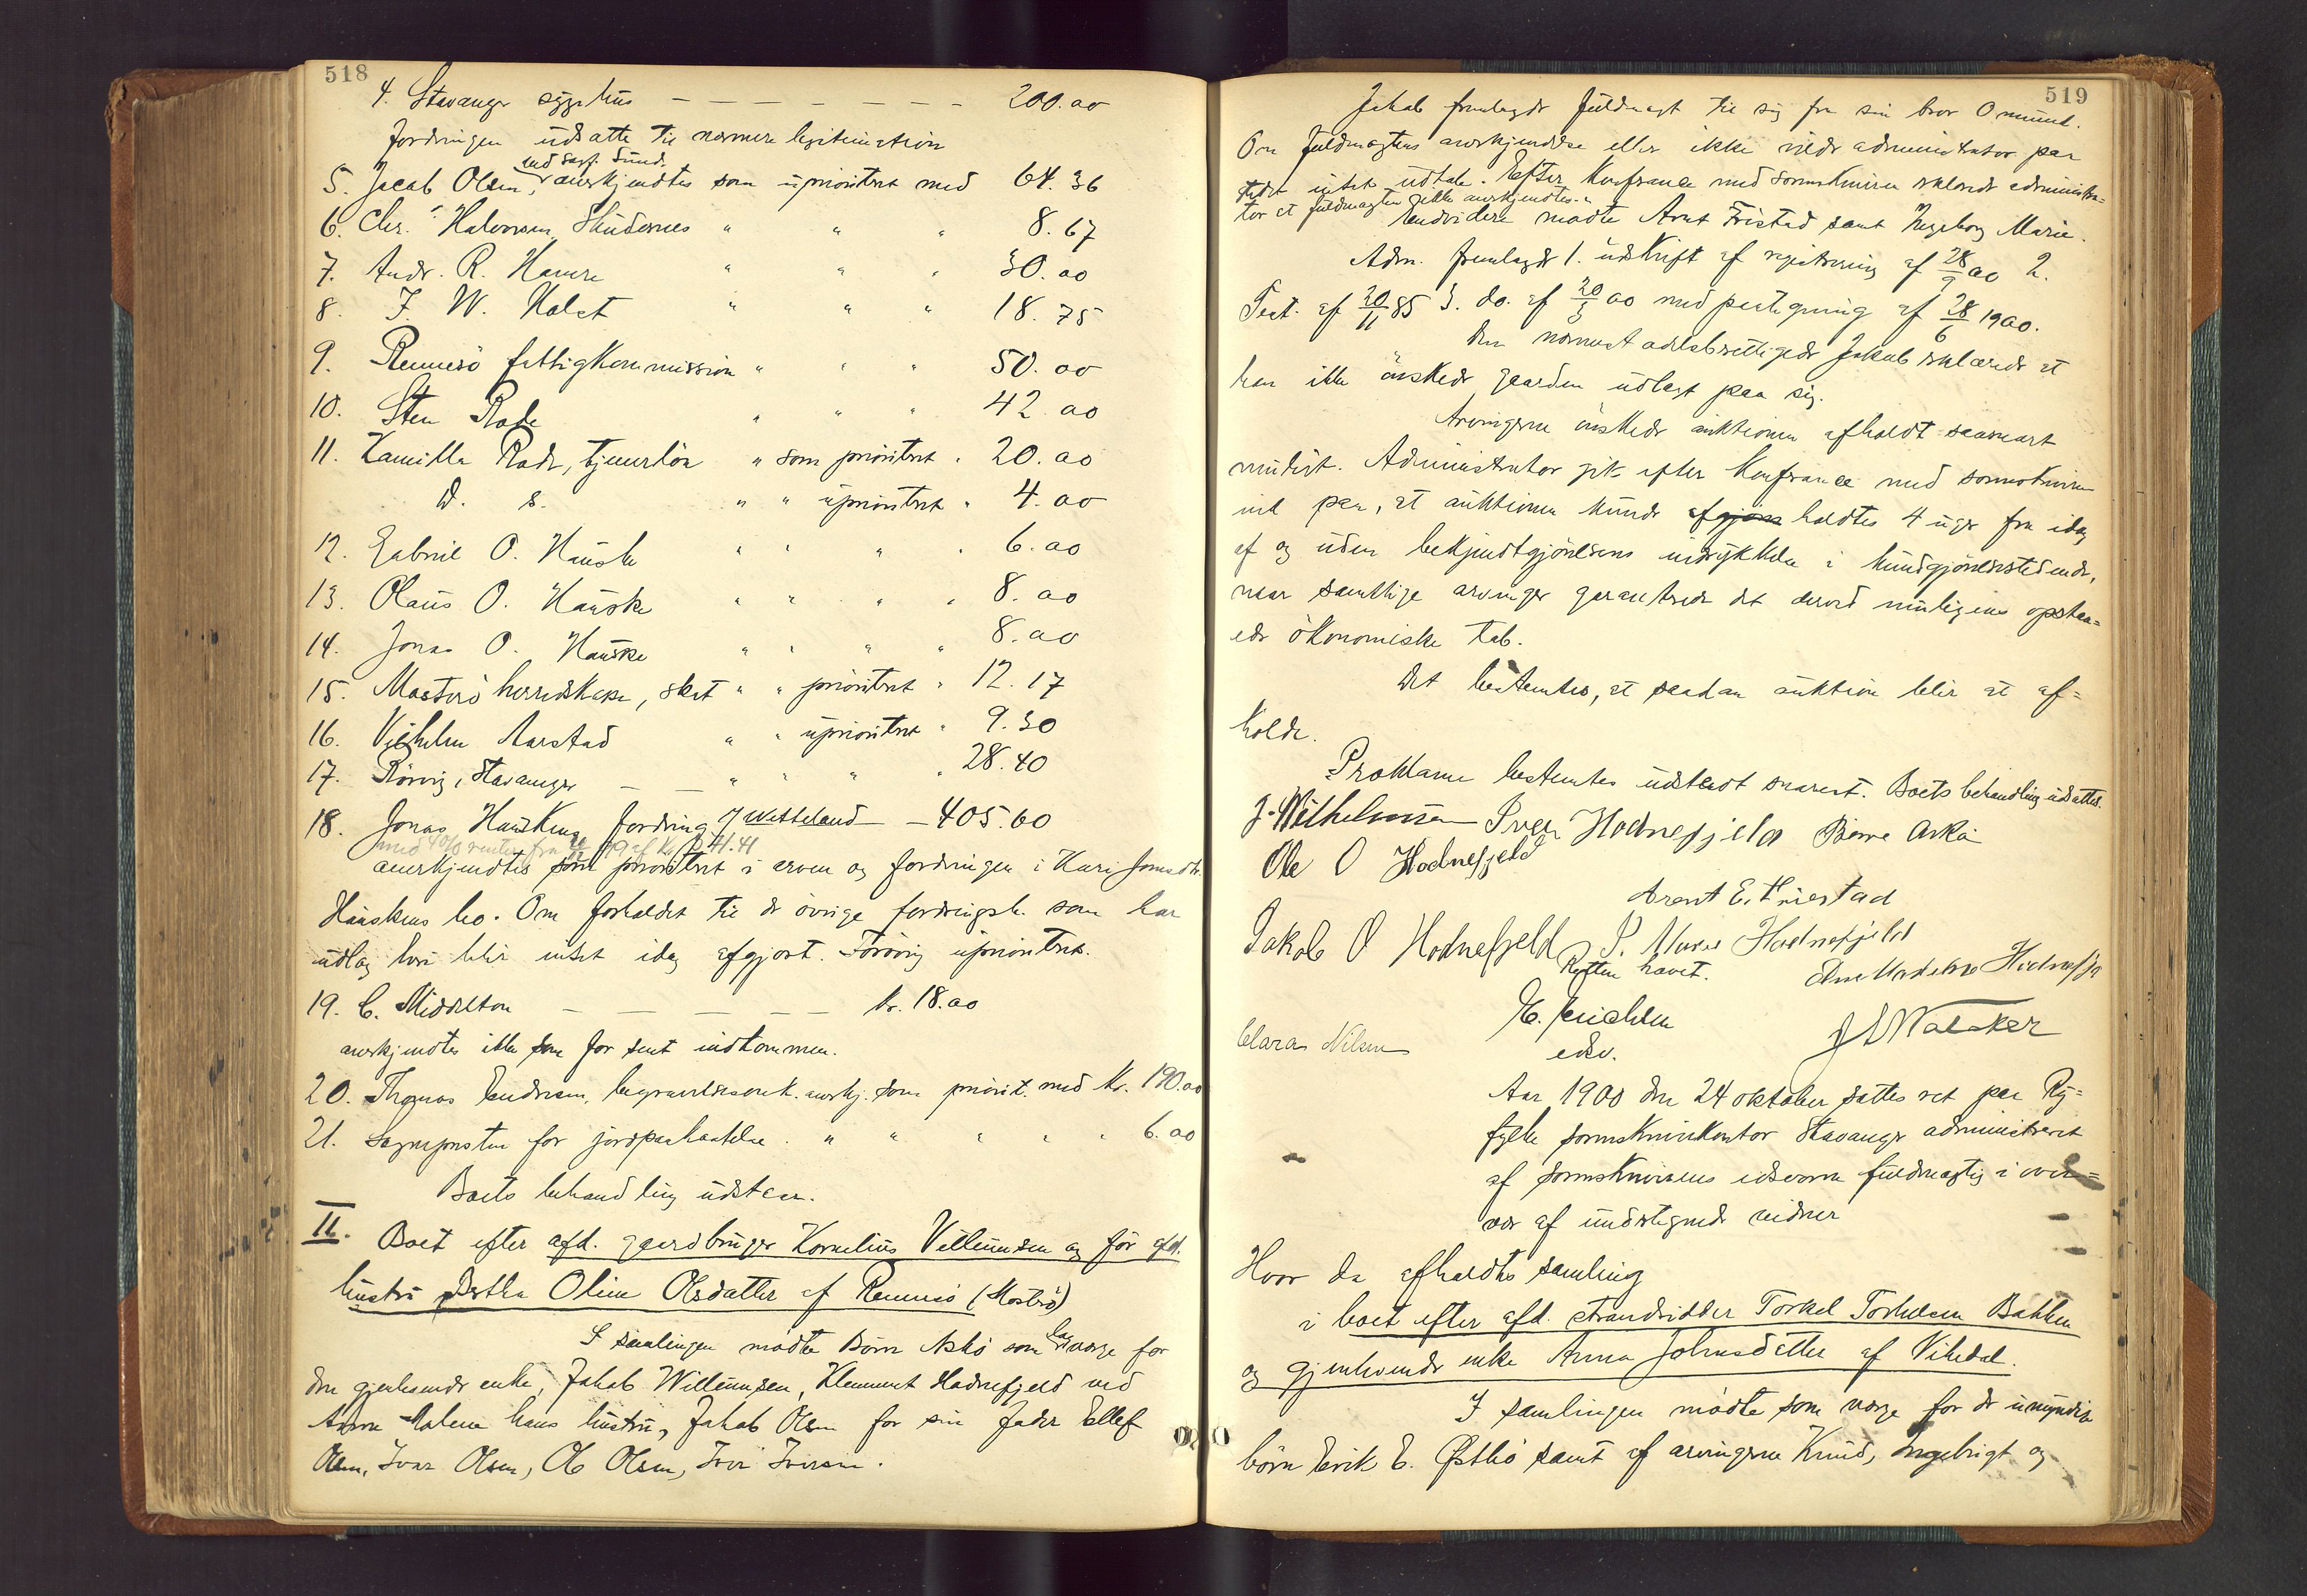 518
4. Stavanger sygehus — — — — — — — 200.00
Fordringen udsatte til nærmere legitimation
ved sagf. Sund.
5. Jacob Olsen, anerkjendtes som uprioritert med 64.36
6. Chr. Halvorsen, Skudesnes " " " 8.67
7. Andr. R. Hamre " " " 30.00
8. J. W. Holst " " " 18.75
9. Rennesö fattigkommission " " " 50.00
10. Sten Rode " " " 42.00
11. Kamilla Rode, tjenerlön " som prioritert " 20.00
D. s. " " uprioritert " 4.00
12. Gabriel O. Hauske " " " " 6.00
13. Olaus O. Hauske " " " " 8.00
14. Jonas O. Hauske " " " " 8.00
15. Mosterö herredskasse, skat " " prioritert " 12.17
16. Vilhelm Aarstad " " uprioritert " 9.30
17. Rörvig, Stavanger — — " " " " 28.40
18. Jonas Hauskens fordring J Vetteland — 405.60
med 4% renter fra 41.41
anerkjendtes som prioritert i arven og fordringen i Kari Jonsdtr.
Hauskens bo. Om forholdet til de övrige fordringsh. som har
udlæg heri blir intet idag afgjort. Forövrig uprioritert.
19. C. Middelton — — — — — kr. 18.00
anerkjendtes ikke som for sent indkommen.
20. Thomas Endresen, begravelsesomk. anerkj. som priorit. med kr. 190.00
21. Sognepresten for jordpaakastelse " " " " " 6.00
Boets behandling udstaar.
II. Boet efter afd. gaardbruger Kornelius Villumsen og för afd.
hustru Bertha Oline Olsdatter af Rennesö (Mosterö)
I samlingen mödte Börre Askö som lagværge for
den gjenlevende enke, Jakob Willumsen, Klemmet Hodnefjeld ved
Anne Malene hans hustru, Jakob Olsen for sin fader Ellef
Olsen, Ivar Olsen, Ole Olsen, Iver Iversen.
519
Jakob fremlagde fuldmagt til sig fra sin bror Omund.
Om fuldmagtens anerkjendelse eller ikke vilde administrator paa
stedet intet udtale. Efter konferance med sorenskriveren erklærede administra-
tor at fuldmagten ikke anerkjendtes.
Endvidere mödte Arnt Fristad samt Ingeborg Marie.
Adm. fremlagde 1. udskrift af registrering af 28/9 00 2.
Test. af 20/11 85 3. do. af 20/3 00 med paategning af 28/6 1900.
Den nærmest odelsberettigede Jakob erklærede at
han ikke önskede gaarden udlagt paa sig.
Arvingerne önskede auktionen afholdt snarest
muligst. Administrator gik efter konferance med sorenskriveren
ind paa, at auktionen kunde afgjöres holdtes 4 uger fra idag
af og uden bekjendtgjörelsens indrykkelse i kundgjörelsestidende,
naar samtlige arvinger garanterede det derved muligens opstaa-
ede ökonomiske tab.
Det bestemtes, at saadan auktion blir at af-
holde.
Proklama bestemtes udstedt snarest. Boets behandling udsattes.
J. Wilhelmsen Iver Hodnefjeld Börre Askö
Ole O Hodnefjeld
Arent E. Fristad
Jakob O Hodnefjeld I. Marie Hodnefjeld
Rytten havet. Ane Malene Hodnefje
H. Erichsen
edsv.
J L Walaker
Clara Nilsen
Aar 1900 den 24 oktober sattes ret paa Ry-
fylke sorenskriverkontor Stavanger administreret
af sorenskriverens edsvorne fuldmægtig i over-
vær af undertegnede vidner
Hvor da afholdtes samling
i boet efter afd. strandsidder Torkel Torkelsen Bakken
og gjenlevende enke Anna Johnsdatter af Vikedal.
I samlingen mödte som værge for de umyndige
börn Erik E. Østbö samt af arvingerne Knud, Ingebrigt og